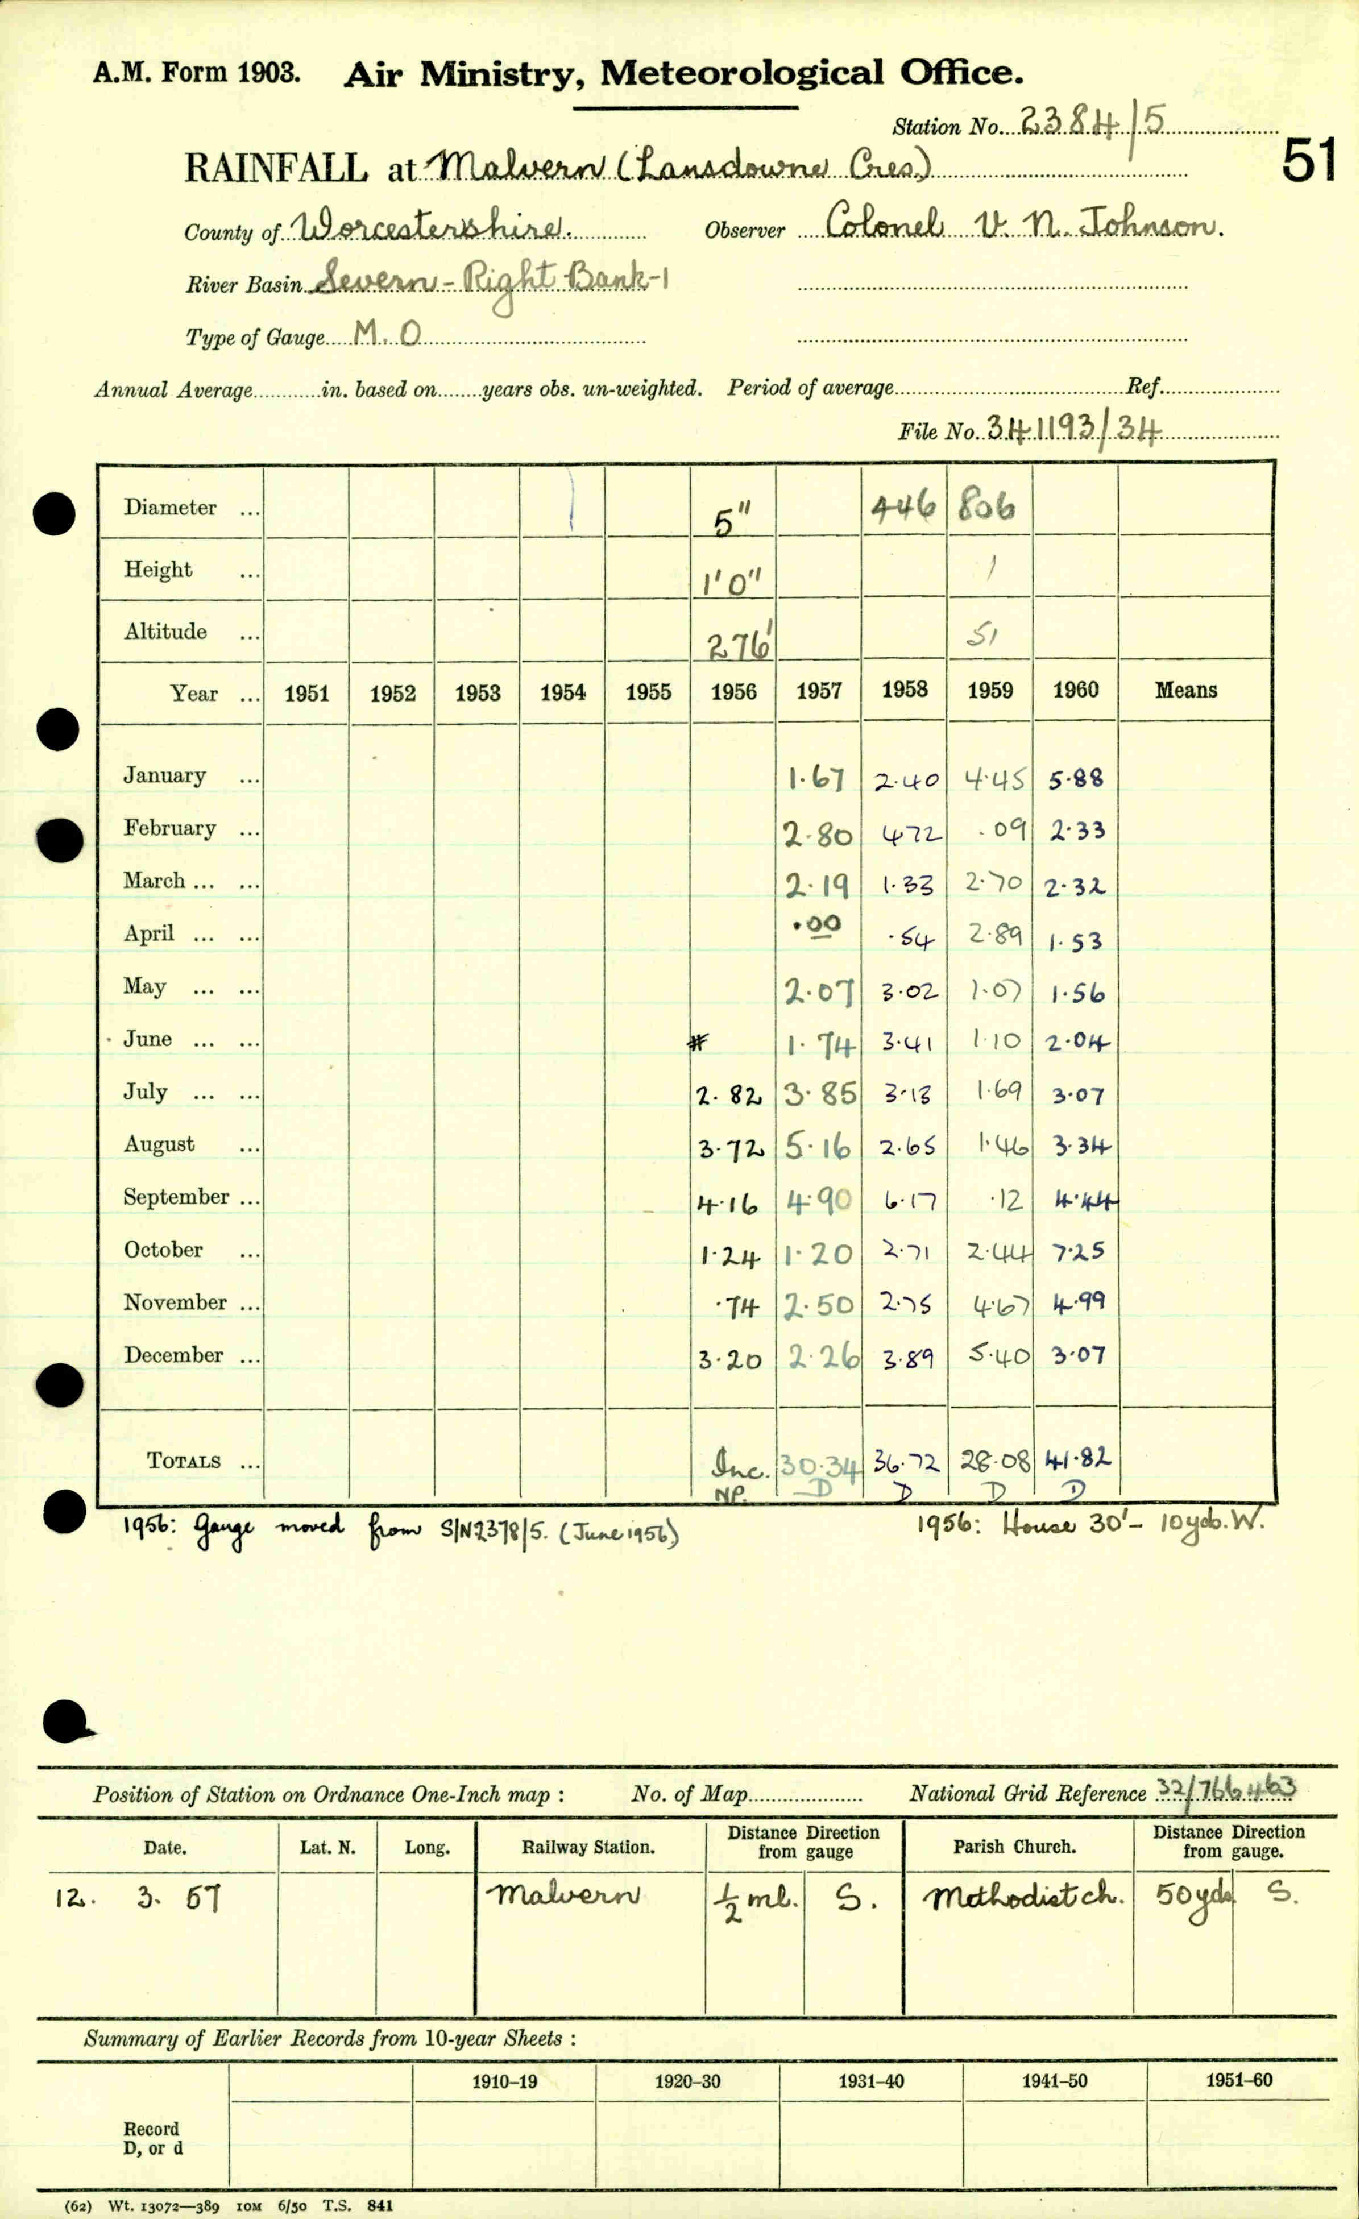 A.M. Form 1903. Air Ministry, Meteorological Office.
Station No. 2384/5
51
RAINFALL at Malvern (Lansdowne Cres.)
County of Worcestershire. Observer Colonel V. N. Johnson.
River Basin Severn - Right Bank-1
Type of Gauge M.O
Annual Average in. based on years obs. un-weighted. Period of average Ref.
File No. 341193/34
Diameter ... 5" 446 806
Height ... 1'0" 1
Altitude ... 276' 51
Year ... 1951 1952 1953 1954 1955 1956 1957 1958 1959 1960 Means
January ... 1.67 2.40 4.45 5.88
February ... 2.80 4.72 .09 2.33
March ... ... 2.19 1.33 2.70 2.32
April ... ... .00 .54 2.89 1.53
May ... ... 2.07 3.02 1.07 1.56
June ... ... # 1.74 3.41 1.10 2.04
July ... ... 2.82 3.85 3.13 1.69 3.07
August ... 3.72 5.16 2.65 1.46 3.34
September ... 4.16 4.90 6.17 .12 4.44
October ... 1.24 1.20 2.71 2.44 7.25
November ... .74 2.50 2.75 4.67 4.99
December ... 3.20 2.26 3.89 5.40 3.07
TOTALS ... Inc. 30.34 36.72 28.08 41.82
NP. D D D D
1956: Gauge moved from S/N2378/5. (June 1956) 1956: House 30' - 10yds. W.
Position of Station on Ordnance One-Inch map : No. of Map National Grid Reference 32/766463
Date. Lat. N. Long. Railway Station. Distance Direction from gauge Parish Church. Distance Direction from gauge.
12. 3. 57 Malvern ½ ml. S. Methodist ch. 50yds S.
Summary of Earlier Records from 10-year Sheets :
1910–19 1920–30 1931–40 1941–50 1951–60
Record
D, or d
(62) Wt. 13072—389 10M 6/50 T.S. 841